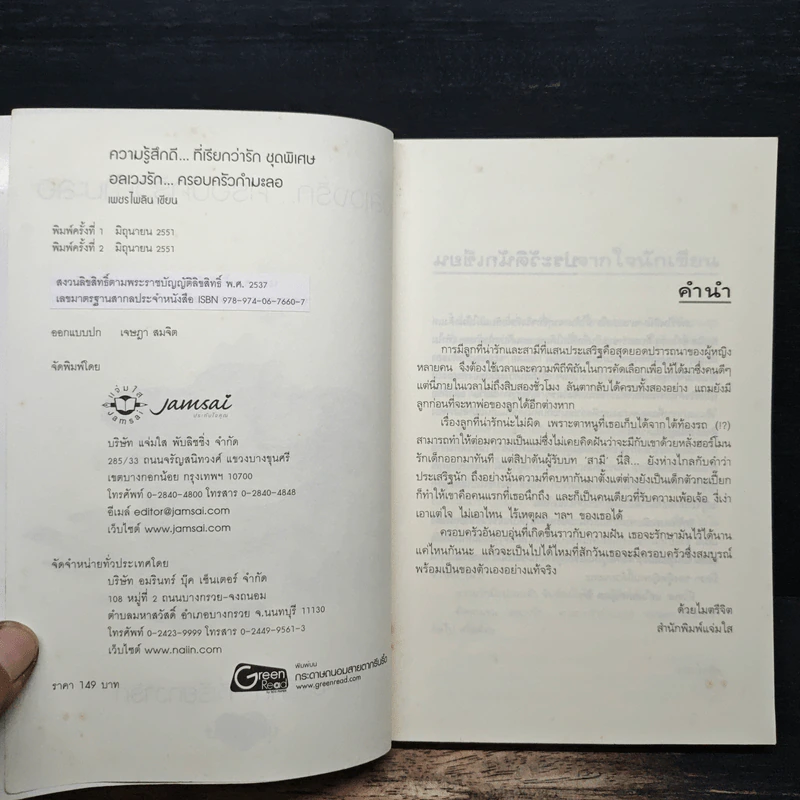 ความรู้สึกดี... ที่เรียกว่ารัก ชุดพิเศษ
อลเวงรัก... ครอบครัวกำมะลอ
เพชรไพลิน เขียน
พิมพ์ครั้งที่ 1 มิถุนายน 2551
พิมพ์ครั้งที่ 2 มิถุนายน 2551
สงวนลิขสิทธิ์ตามพระราชบัญญัติลิขสิทธิ์ พ.ศ. 2537
เลขมาตรฐานสากลประจำหนังสือ ISBN 978-974-06-7660-7
ออกแบบปก เจษฎา สมจิต
จัดพิมพ์โดย
แจ่มใส
Jamsai
Jamsai
บริษัท แจ่มใส พับลิชชิ่ง จำกัด
285/33 ถนนจรัญสนิทวงศ์ แขวงบางขุนศรี
เขตบางกอกน้อย กรุงเทพฯ 10700
โทรศัพท์ 0-2840-4800 โทรสาร 0-2840-4848
อีเมล์ editor@jamsai.com
เว็บไซต์ www.jamsai.com
จัดจำหน่ายทั่วประเทศโดย
บริษัท อมรินทร์ บุ๊ค เซ็นเตอร์ จำกัด
108 หมู่ที่ 2 ถนนบางกรวย-จงถนอม
ตำบลมหาสวัสดิ์ อำเภอบางกรวย จ.นนทบุรี 11130
โทรศัพท์ 0-2423-9999 โทรสาร 0-2449-9561-3
เว็บไซต์ www.naiin.com
ราคา 149 บาท
Green Read
พิมพ์บน
กระดาษถนอมสายตากรีนรี้ด
www.greenread.com
คำนำ
การมีลูกที่น่ารักและสามีที่แสนประเสริฐคือสุดยอดปรารถนาของผู้หญิง
หลายคน จึงต้องใช้เวลาและความพิถีพิถันในการคัดเลือกเพื่อให้ได้มาซึ่งคนดีๆ
แต่นี่ภายในเวลาไม่ถึงสิบสองชั่วโมง ลันตากลับได้ครบทั้งสองอย่าง แถมยังมี
ลูกก่อนที่จะหาพ่อของลูกได้อีกต่างหาก
เรื่องลูกที่น่ารักน่ะไม่ผิด เพราะตาหนูที่เธอเก็บได้จากใต้ท้องรถ (!?)
สามารถทำให้ต่อมความเป็นแม่ซึ่งไม่เคยคิดฝันว่าจะมีกับเขาด้วยหลั่งฮอร์โมน
รักเด็กออกมาทันที แต่สิปาดันผู้รับบท 'สามี' นี่สิ... ยังห่างไกลกับคำว่า
ประเสริฐนัก ถึงอย่างนั้นความที่คบหากันมาตั้งแต่ต่างยังเป็นเด็กตัวกะเปี๊ยก
ก็ทำให้เขาคือคนแรกที่เธอนึกถึง และก็เป็นคนเดียวที่รับความเพ้อเจ้อ งี่เง่า
เอาแต่ใจ ไม่เอาไหน ไร้เหตุผล ฯลฯ ของเธอได้
ครอบครัวอันอบอุ่นที่เกิดขึ้นราวกับความฝัน เธอจะรักษามันไว้ได้นาน
แค่ไหนกันนะ แล้วจะเป็นไปได้ไหมที่สักวันเธอจะมีครอบครัวซึ่งสมบูรณ์
พร้อมเป็นของตัวเองอย่างแท้จริง
ด้วยไมตรีจิต
สำนักพิมพ์แจ่มใส